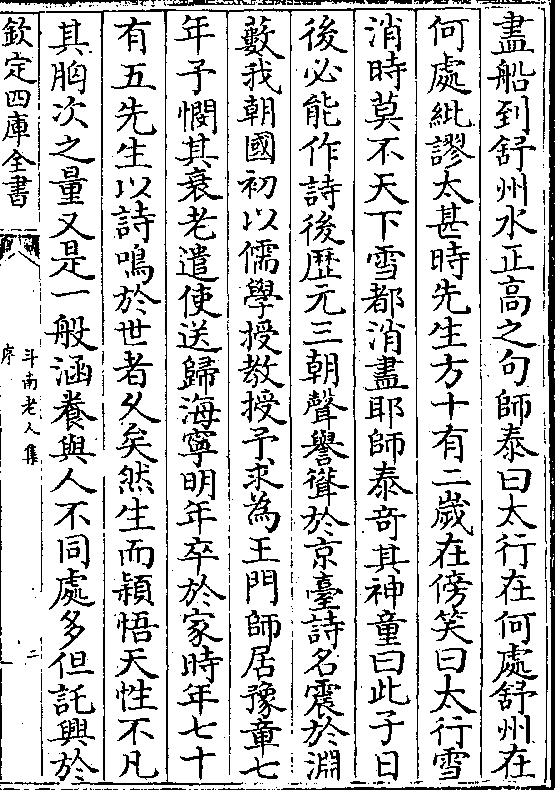 盡船到舒州水正高之句師泰曰太行在何處舒州在
何處紕謬太甚時先生方十有二歲在傍笑曰太行雪
消時莫不天下雪都消盡耶師泰竒其神童曰此子日
後必能作詩後歴元三朝聲譽聳於京臺詩名震於淵
藪我朝國初以儒學授教授予求為王門師居豫章七
年予憫其衰老遣使送歸海寧明年卒於家時年七十
有五先生以詩鳴於世者乆矣然生而穎悟天性不凡
其胸次之量又是一般涵養與人不同處多但託興於
欽定四庫全書
斗南老人集
序
二